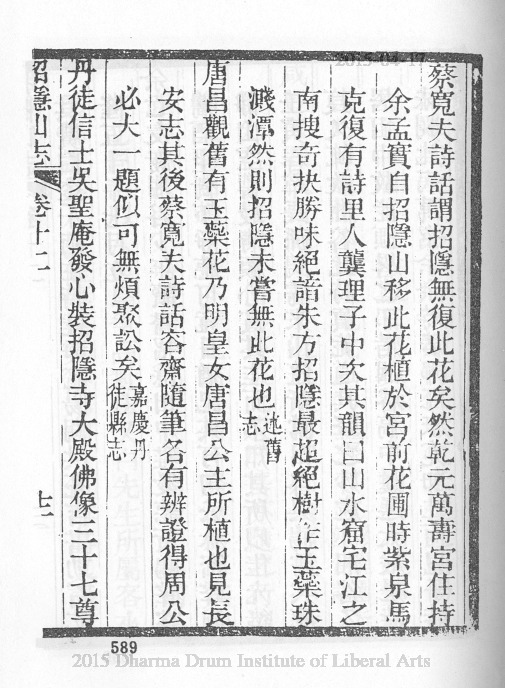 蔡寬夫詩話謂招隱無復此花矣然乾元萬壽宮住持
余孟實自招隱山移此花植於宮前花圃時紫泉馬
克復有詩里人龔理子中次其韻曰山水窟宅江之
南搜奇抉勝味絕諳朱方招隱最超絕樹作玉蘂珠
濺潭然則招隱未嘗無此花也述舊志
唐昌觀舊有玉蘂花乃明皇女唐昌公主所植也見長
安志其後蔡寬夫詩話容齋隨筆各有辨證得周公
必大一題似可無煩聚訟矣嘉慶丹徒縣志
丹徒信士吳聖庵發心裝招隱寺大殿佛像三十七尊
招隱山志
卷十二
十二
589
2015 Dharma Drum Institute of Liberal Arts